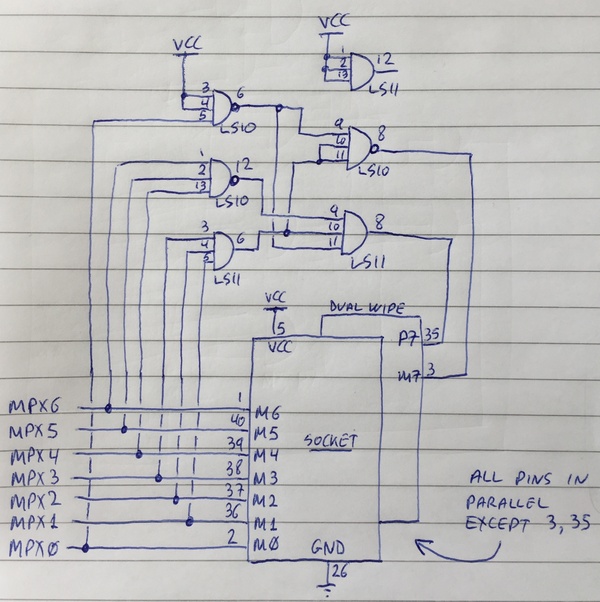 VCC
1
2
13
12
LS11
VCC
3
4
5
6
LS10
9
10
11
8
LS10
1
2
13
12
LS10
9
10
11
8
LS11
3
4
5
6
LS11
VCC
5
VCC
DUAL WIPE
P7 35
M7 3
MPX6 1 M6
MPX5 40 M5
MPX4 39 M4
MPX3 38 M3
MPX2 37 M2
MPX1 36 M1
MPX0 2 M0
SOCKET
GND
26
ALL PINS IN
PARALLEL
EXCEPT 3, 35